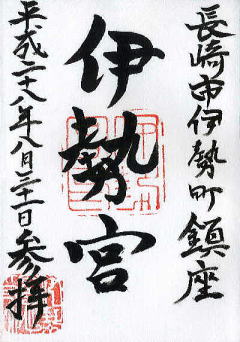 長崎市伊勢町鎮座
伊勢宮
平成二十八年八月三十一日参拝